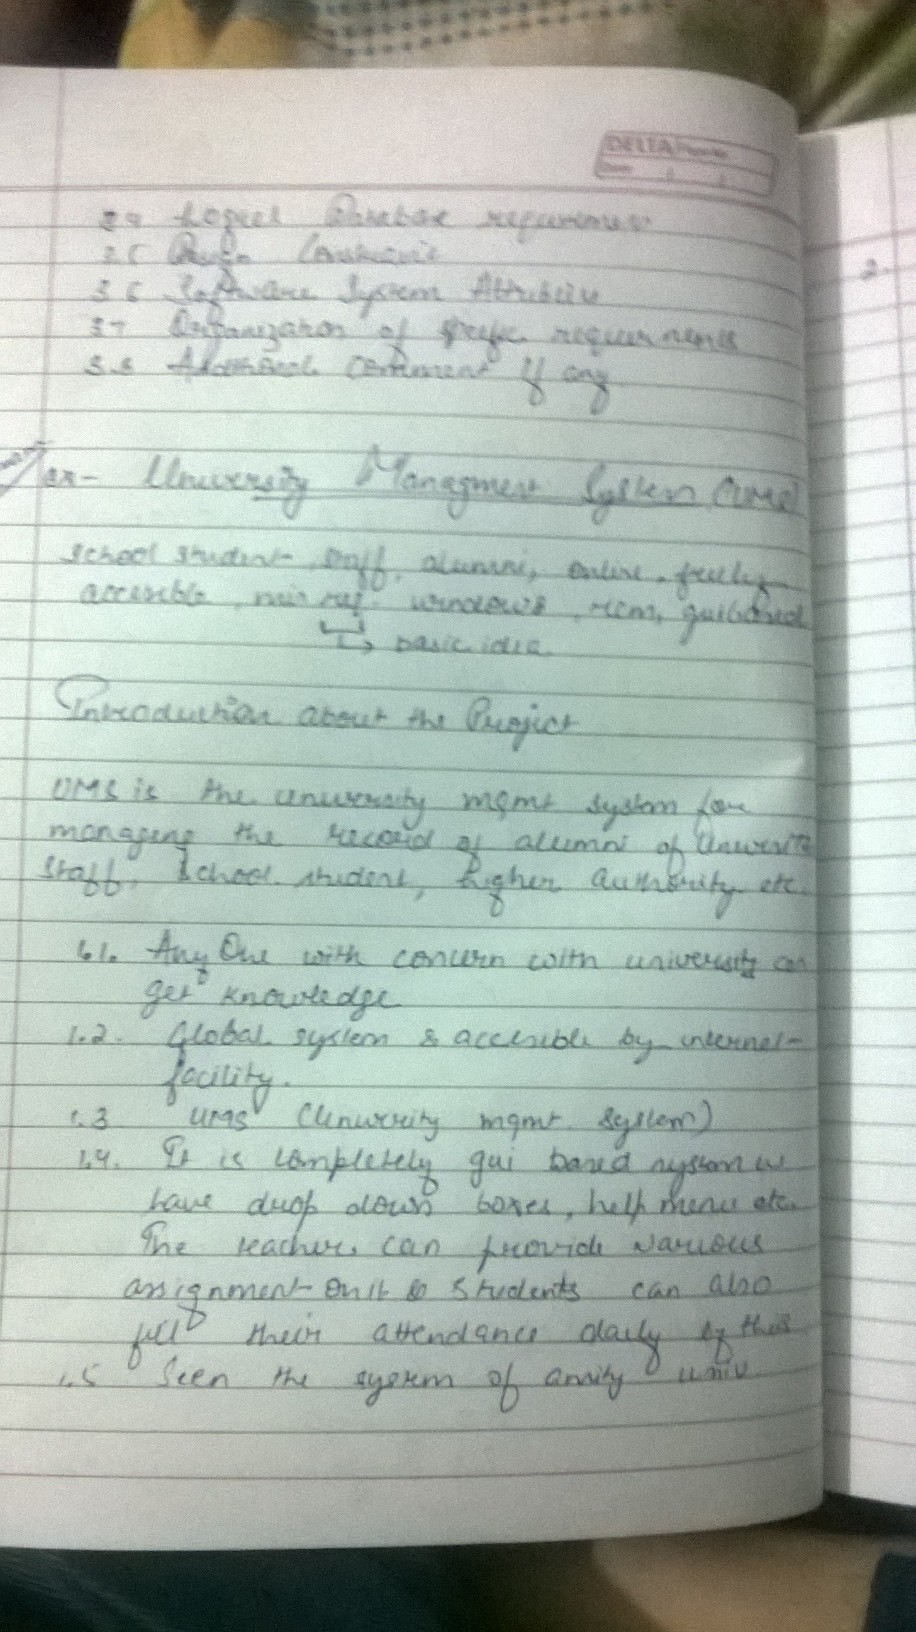 DELTA
3.4 Logical Database requirements
3.5 Design Constraints
3.6 Software System Attribute
3.7 Organization of specific requirements
3.8 Additional Comment if any
ex- University Managment System (UMS)
School student staff, alumni, online,
accessible, windows, guibased
basic idea
Introduction about the Project
UMS is the university mgmt system for
manageng the record of alumni of University
Staff, School student, higher authority etc.
1.1. Any One with concern with university can
get knowledge
1.2. Global system & accesible by internet
facility.
1.3 UMS (University mgmt system)
1.4. It is completely gui based system
have drop down boxes, help menu etc.
The teachers can provide various
assignment students can also
fill their attendance daily
1.5 Seen the system of amity univ.
2.